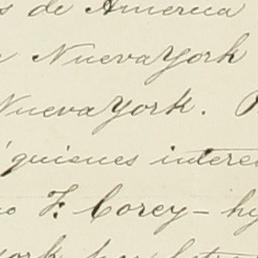 s de America
Nueva York
Nueva York.
quienes intere
F. Corey - hy
York